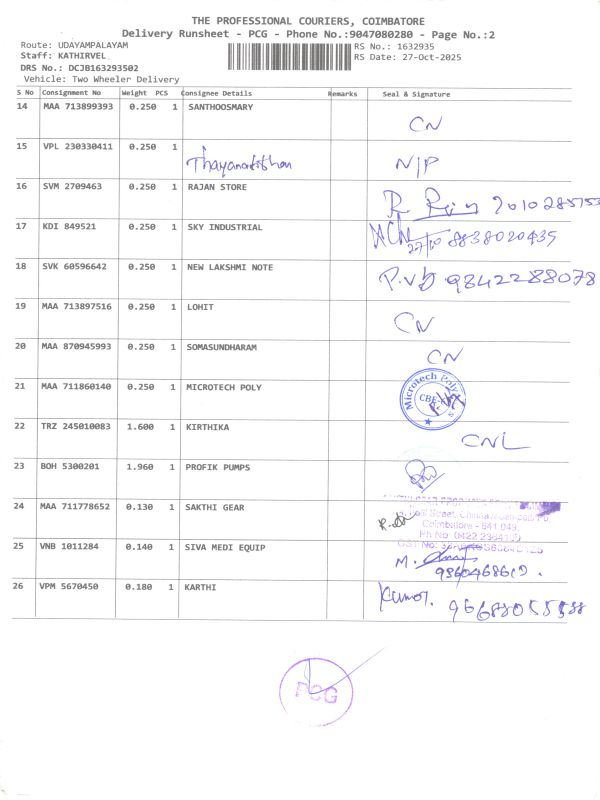 THE PROFESSIONAL COURIERS, COIMBATORE
Delivery Runsheet - PCG - Phone No.:9047080280 - Page No.:2
Route: UDAYAMPALAYAM RS No.: 1632935
Staff: KATHIRVEL RS Date: 27-Oct-2025
DRS No.: DCJB163293502
Vehicle: Two Wheeler Delivery
S No Consignment No Weight PCS Consignee Details Remarks Seal & Signature
14 MAA 713899393 0.250 1 SANTHOOSMARY
CN
15 VPL 230330411 0.250 1
N/P
16 SVM 2709463 0.250 1 RAJAN STORE
17 KDI 849521 0.250 1 SKY INDUSTRIAL
27/10 8838020435
18 SVK 60596642 0.250 1 NEW LAKSHMI NOTE
P.vb 9842288078
19 MAA 713897516 0.250 1 LOHIT
CN
20 MAA 870945993 0.250 1 SOMASUNDHARAM
CN
21 MAA 711860140 0.250 1 MICROTECH POLY
Microtech Poly
22 TRZ 245010083 1.600 1 KIRTHIKA
CNL
23 BOH 5300201 1.960 1 PROFIK PUMPS
24 MAA 711778652 0.130 1 SAKTHI GEAR
Coimbatore - 641 049.
25 VNB 1011284 0.140 1 SIVA MEDI EQUIP
M.
26 VPM 5670450 0.180 1 KARTHI
Kumar.
PCG